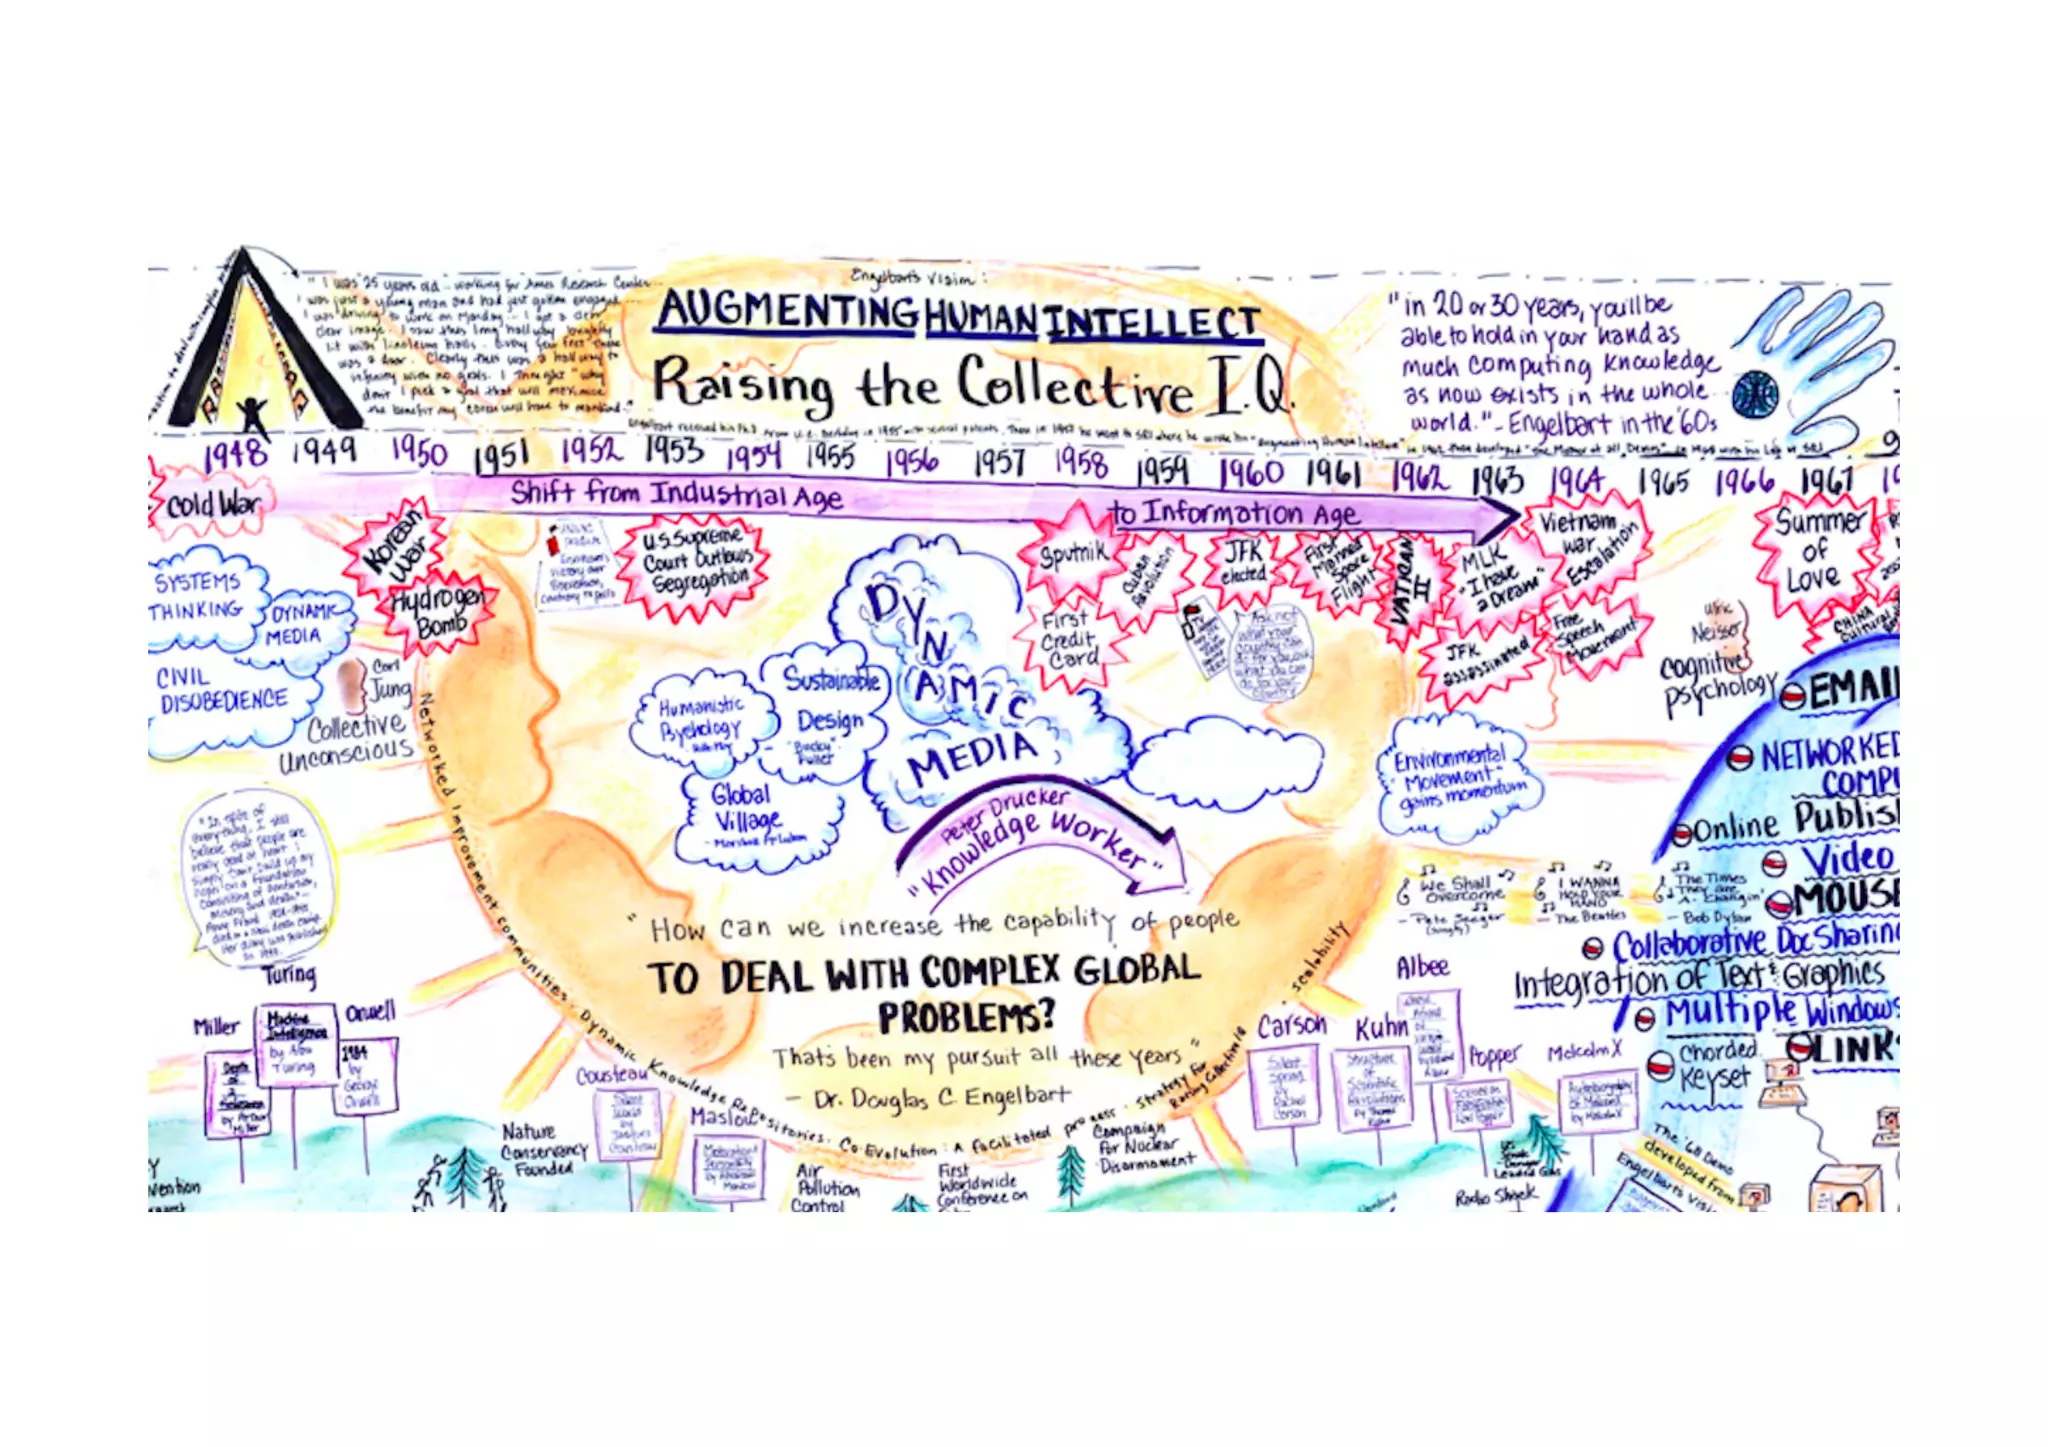 Engelbart's Vision:
AUGMENTING HUMAN INTELLECT
Raising the Collective I.Q.
"I was 25 years old - working for Ames Research Center...
I was just a young man and had just gotten engaged...
I was driving to work on Monday... I got a clear
clear image. I saw this long hallway brightly
lit with linoleum halls. Every few feet there
was a door. Clearly this was a hallway to
infinity with no goals. I thought "why
don't I pick a goal that will maximize
the benefit my career will have to mankind."
"in 20 or 30 years, you'll be
able to hold in your hand as
much computing knowledge
as now exists in the whole
world." - Engelbart in the '60s
1948 1949 1950 1951 1952 1953 1954 1955 1956 1957 1958 1959 1960 1961 1962 1963 1964 1965 1966 1967
Shift from Industrial Age to Information Age
Cold War
Korean
War
Hydrogen
Bomb
U.S. Supreme
Court Outlaws
Segregation
Sputnik
Cuban
Revolution
First
Credit
Card
JFK
elected
First
Manned
Space
Flight
VATICAN
II
MLK
"I have
a Dream"
JFK
assassinated
Vietnam
War
Escalation
Free
Speech
Movement
Summer
of
Love
CHINA
Cultural
SYSTEMS
THINKING
DYNAMIC
MEDIA
CIVIL
DISOBEDIENCE
Carl
Jung
Collective
Unconscious
"Ask not
what your
country can
do for you, but
what you can
do for your
country"
Humanistic
Pychology
Sustainable
Design
"Bucky"
Fuller
Global
Village
DYNAMIC
MEDIA
Peter Drucker
"Knowledge Worker"
Environmental
Movement"
gains momentum
Ulric
Neisser
Cognitive
Psychology
"In spite of
everything, I still
believe that people are
really good at heart!
Simply can't build up my
hopes on a foundation
consisting of confusion,
misery and death"-
Anne Frank
"How can we increase the capability of people
TO DEAL WITH COMPLEX GLOBAL
PROBLEMS?
Thats been my pursuit all these years"
- Dr. Douglas C. Engelbart
Networked Improvement Communities · Dynamic Knowledge Repositories · Co-Evolution: A facilitated process · Strategy For Raising Collective IQ · Scalability
We Shall
Overcome
- Pete Seeger
I WANNA
HOLD YOUR
HAND
- The Beatles
The Times
They are
A-Changin'
- Bob Dylan
EMAIL
NETWORKED
COMPU
Online Publis
Video
MOUSE
Collaborative Doc Sharing
Integration of Text & Graphics
Multiple Windows
Chorded
Keyset
LINK
The '68 Demo
developed from
Engelbart's Visi
Turing
Machine
Intelligence
by Alan
Turing
Miller
Orwell
1984
by
George
Orwell
Cousteau
Silent
World
by
Jacques
Cousteau
Maslow
Motivation &
Personality
by Abraham
Maslow
Nature
Conservancy
Founded
Air
Pollution
Control
First
Worldwide
Conference on
Campaign
For Nuclear
Disarmament
Carson
Silent
Spring
by
Rachel
Carson
Kuhn
Structure
of
Scientific
Revolutions
by Thomas
Kuhn
Albee
Popper
Malcolm X
Autobiography
of Malcolm X
by Malcolm X
Leaded Gas
Radio Shack